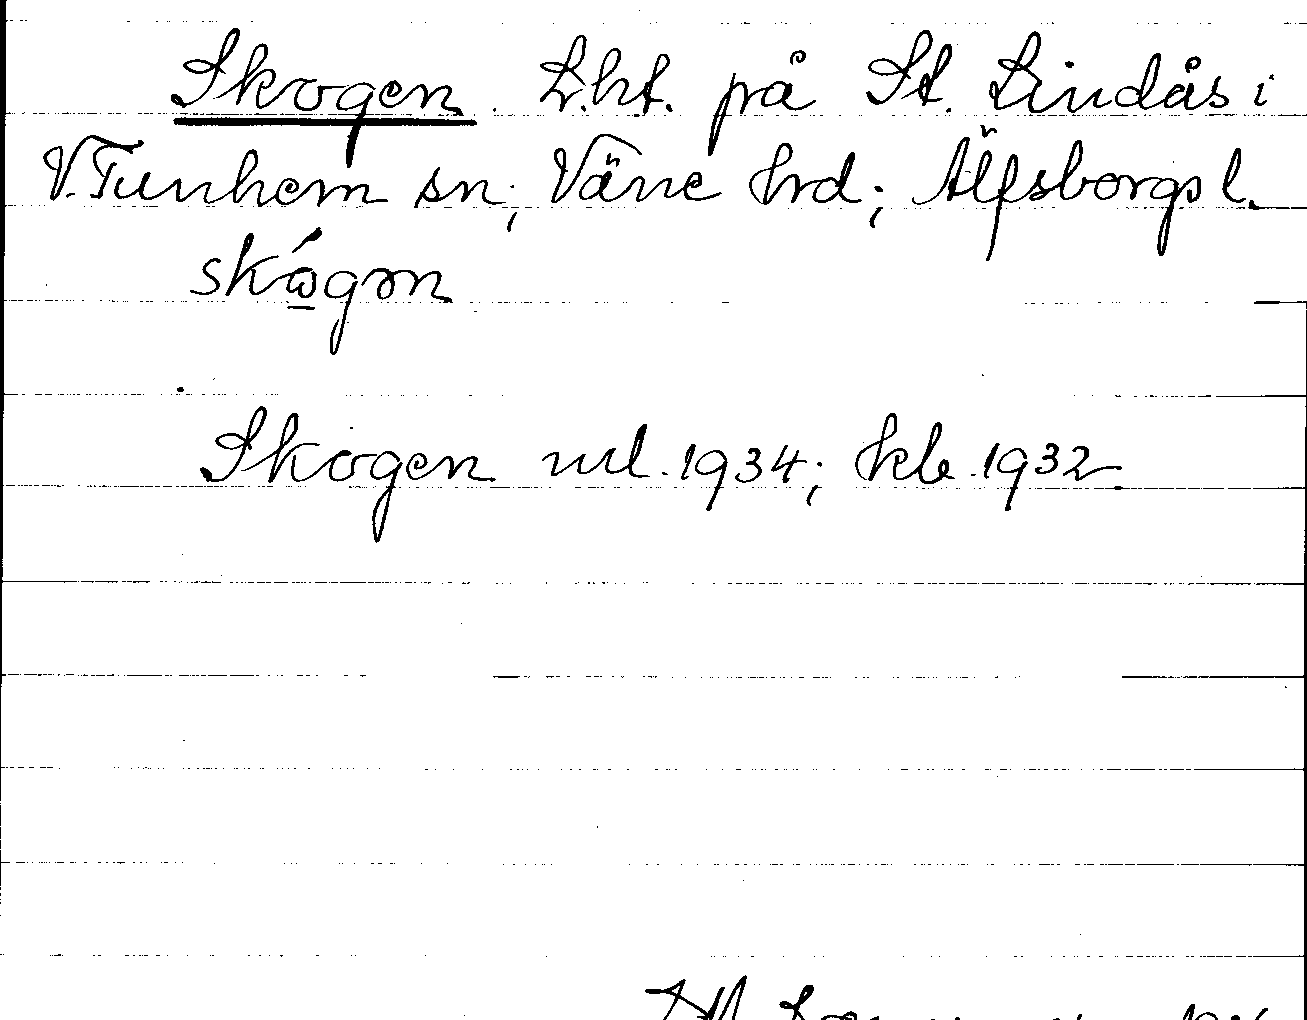 Skogen. L.ht. på St. Lindås i
V. Tunhem sn; Väne hrd; Älfsborgs l.
skó̱gən
Skogen ml. 1934; kb. 1932.